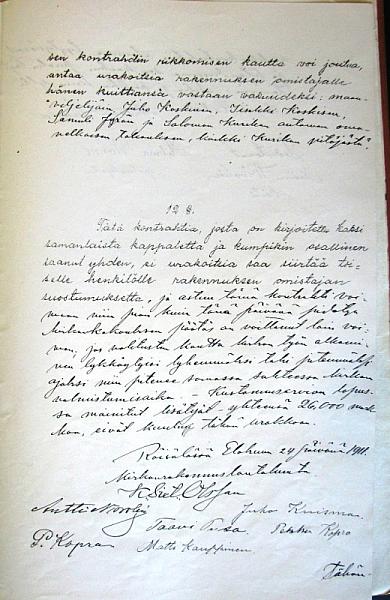 sen kontrahtin rikkomisen kautta voi joutua,
antaa urakoitsia rakennuksen omistajalle
hänen kuittiansa vastaan vakuudeksi: maan-
viljelijäin Juho Koskisen, Heikki Koskisen,
Samuli Jyrän ja Salomon antaman oma-
velkaisen takauksen, kaikki pitäjästä.
12 §.
Tätä kontrahtia, josta on kirjoitettu kaksi
samanlaista kappaletta ja kumpikin osallinen
saanut yhden, ei urakoitsia saa siirtää toi-
selle henkilölle rakennuksen omistajan
suostumuksetta, ja astuu tämä kontrahti voi-
maan niin pian kuin tänä päivänä pidetyn
kirkonkokouksen päätös on voittanut lain voi-
man, jos valitusten kautta kirkon työn alkami-
nen lykkäytyisi lyhemmäksi tahi pitemmäksi
ajaksi niin pitenee samassa suhteessa kirkon
valmistumisaika. Kustannusarvion lopus-
sa mainitut lisätyöt yhteensä 26,000 mark-
kaa, eivät kuulu tähän urakkaan.
Räisälässä Elokuun 24 päivänä 1911.
Kirkonrakennuslautakunta
K. Siel. Olsson
Antti Juho Kuisma
Paavo Pekka Kopra
P. Kopra Matti Kauppinen
Tähän-